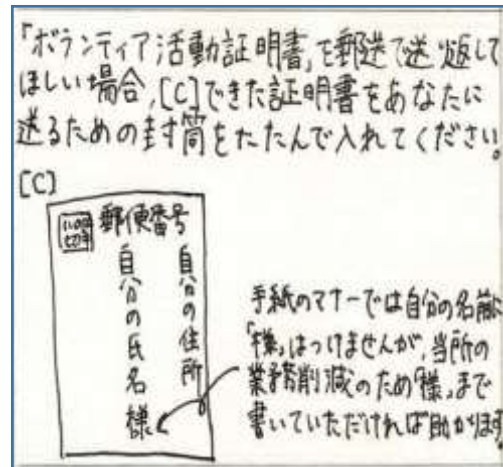 「ボランティア活動証明書」を郵送で送り返して
ほしい場合、[C]できた証明書をあなたに
送るための封筒をたたんで入れてください。
[C]
切手
郵便番号
自分の住所
自分の氏名 様
手紙のマナーでは自分の名前に
「様」はつけませんが、当所の
業務削減のため「様」まで
書いていただければ助かります。